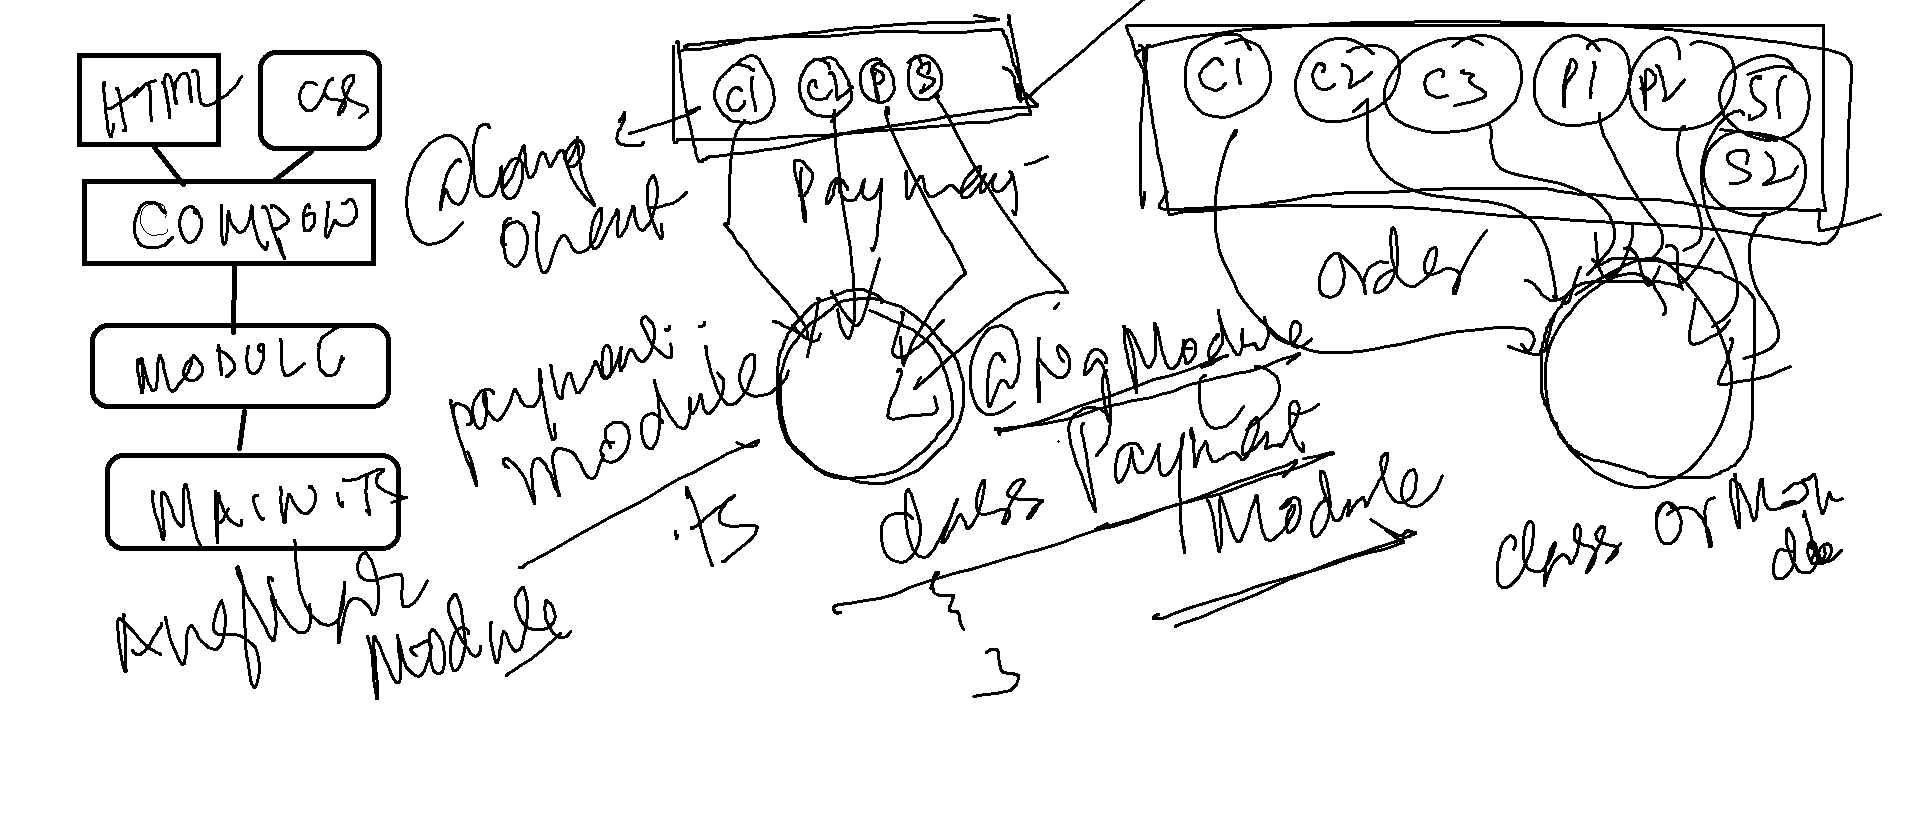 HTML
CSS
COMPON
MODULE
MAIN.TS
Angular
Module
@Comp
onent
C1 C2 P S
Payment
payment.
module
.ts
@NgModule
class Payment
Module
{
}
C1 C2 C3 P1 P2 S1
S2
order
class OrMou
dle